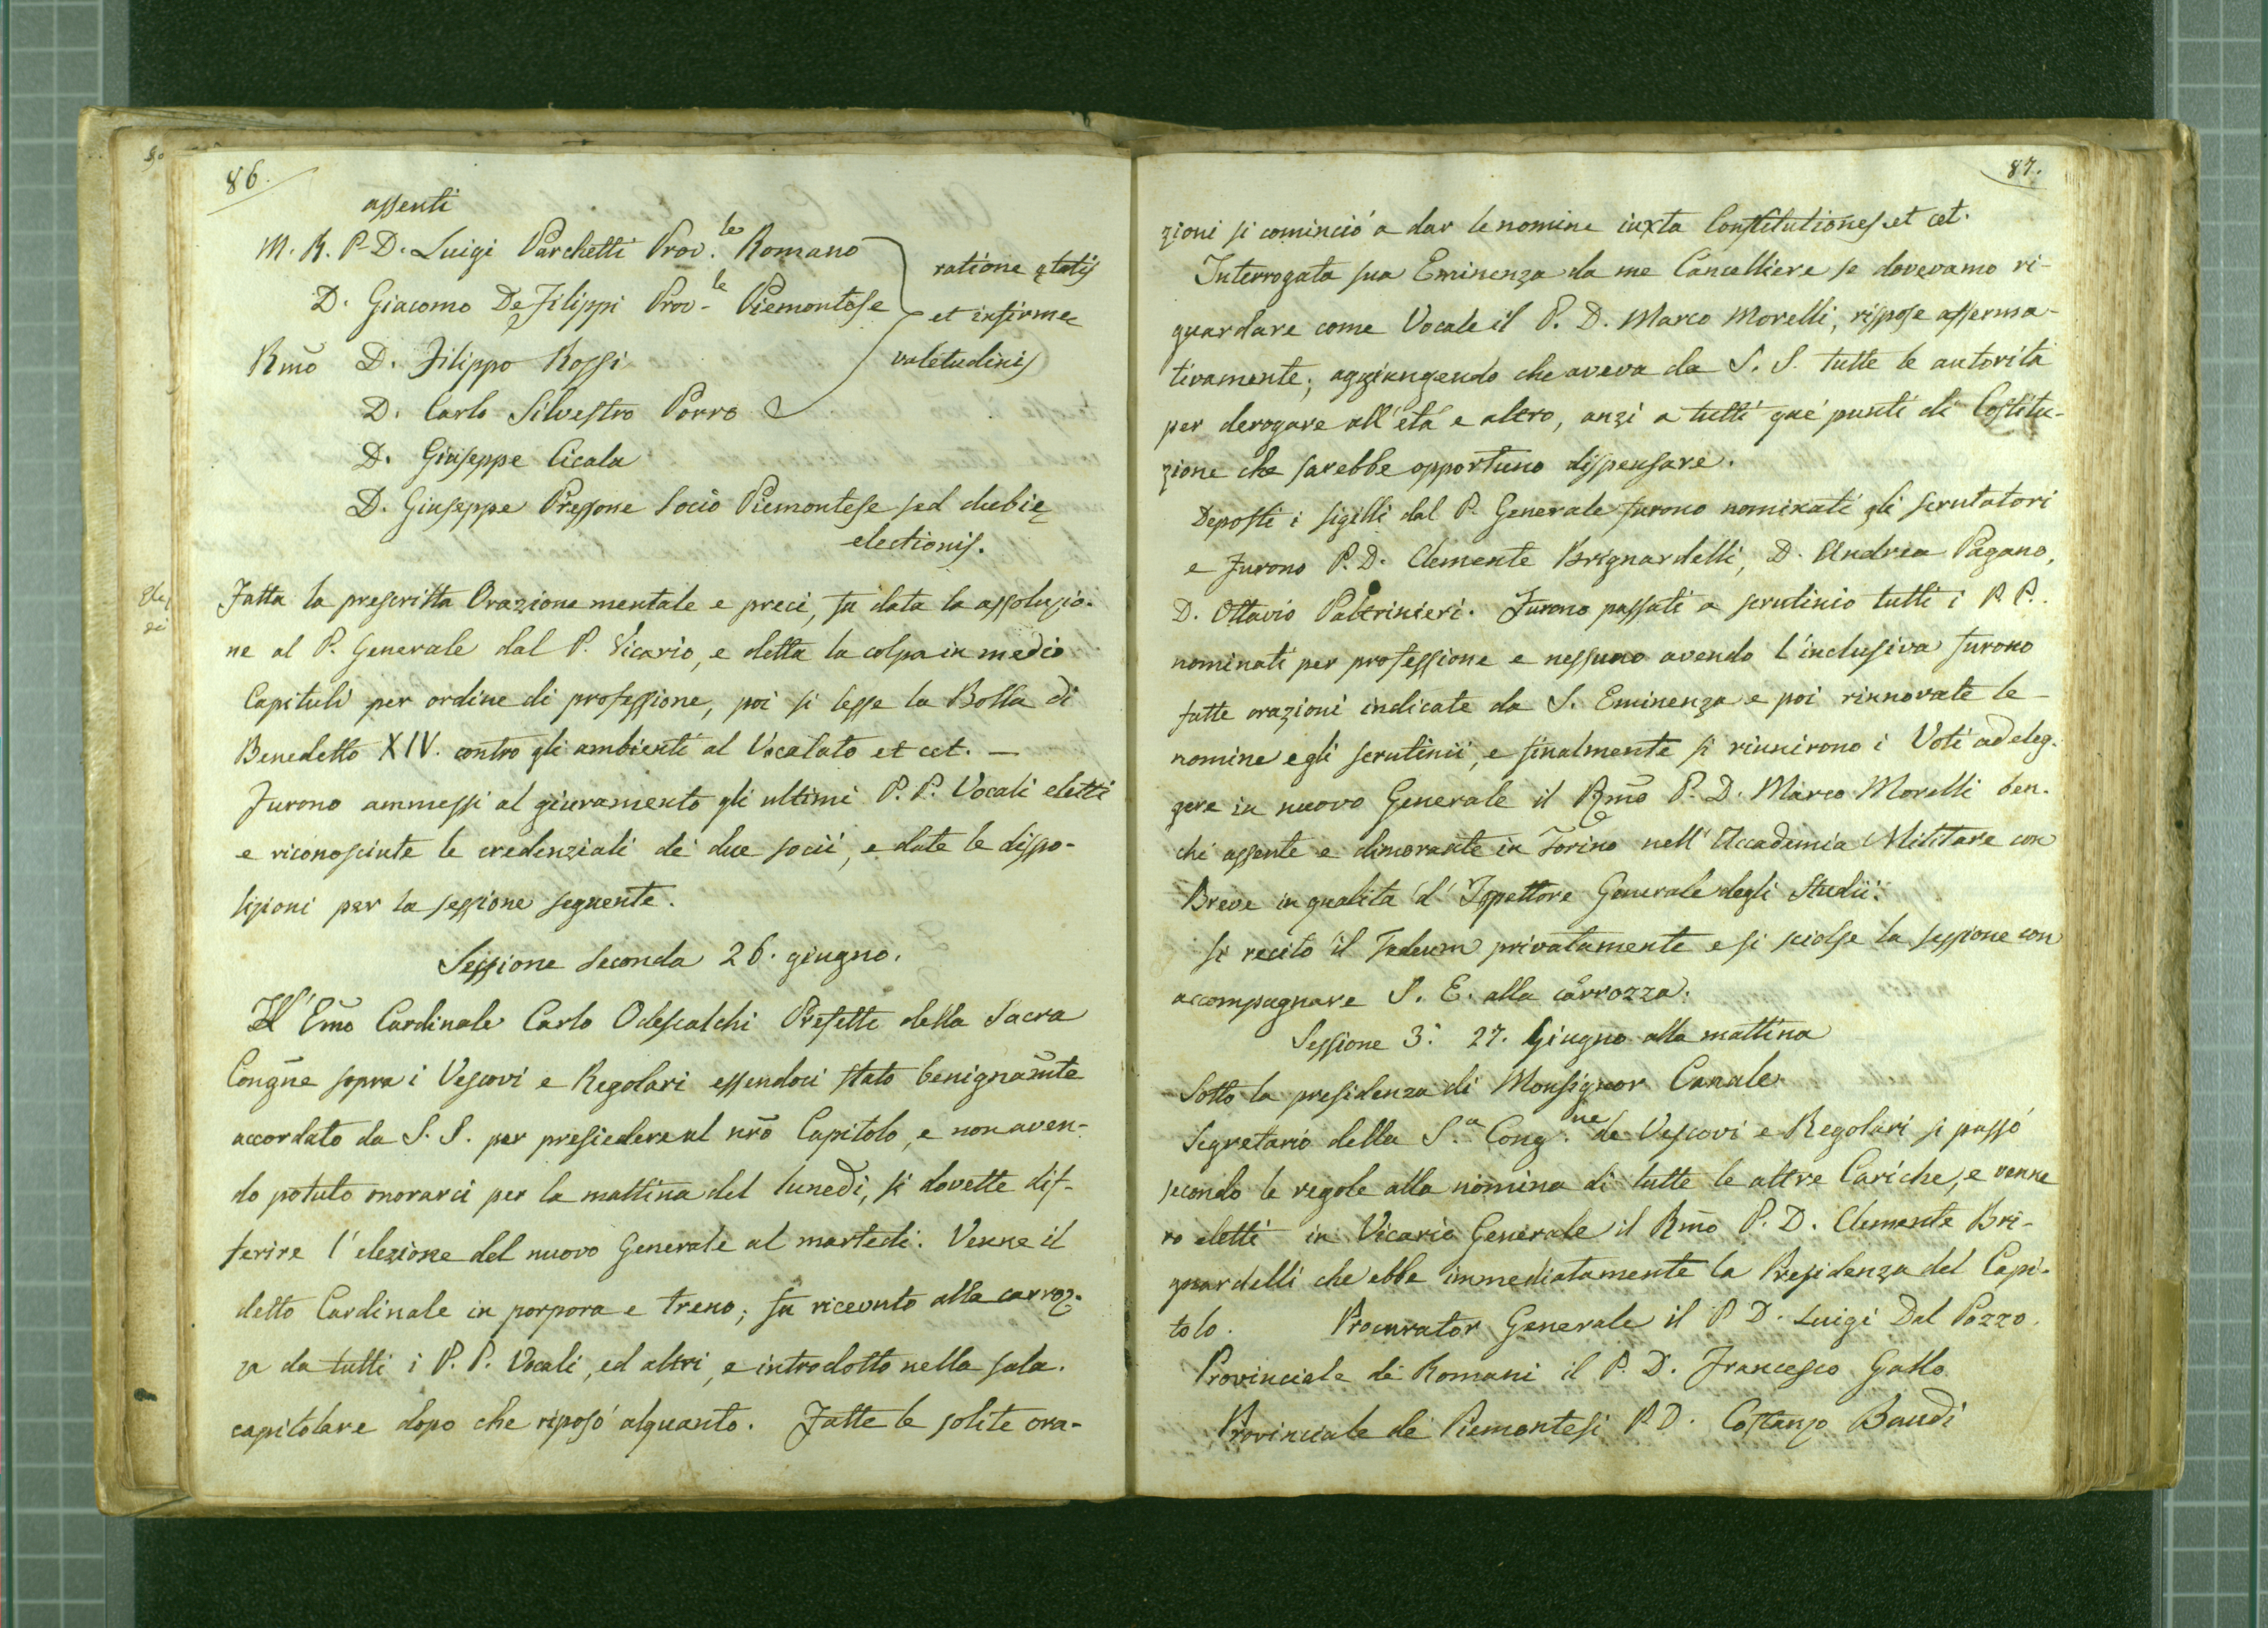 86.
assenti
M. R. P. D. Luigi Parchetti Prov.le Romano
ratione ętatis
D. Giacomo De Filippi Prov.le Piemontese
et infirmę
Rmo D. Filippo Rossi
valetudinis
D. Carlo Silvestro Porro
D. Giuseppe Cicala
D. Giuseppe Pressone Socio Piemontese sed dubię
electionis.
Fatta la prescritta Orazione mentale e preci, fu data la assoluzio-
ne al P. Generale dal P. Vicario, e detta la colpa in medio
Capituli per ordine di professione, poi si lesse la Bolla di
Benedetto XIV. contro gli ambienti al Vocalato et cet. —
Furono ammessi al giuramento gli ultimi P. P. Vocali eletti
e riconosciute le credenziali de' due socii, e date le dispo-
sizioni per la sessione seguente.
Sessione seconda 26. giugno.
L'Emo Cardinale Carlo Odescalchi Prefetto della Sacra
Congne sopra i Vescovi e Regolari essendoci stato benignamte
accordato da S. S. per presiedere al nro Capitolo, e non aven-
do potuto onorarci per la mattina del lunedì, si dovette dif-
ferire l'elezione del nuovo Generale al martedì. Venne il
detto Cardinale in porpora e treno; fu ricevuto alla carroz-
za da tutti i P. P. Vocali, ed altri, e introdotto nella sala.
capitolare dopo che riposò alquanto. Fatte le solite ora-
87.
zioni si cominciò a dar le nomine iuxta Constitutiones et cet.
Interrogata sua Eminenza da me Cancelliere se dovevamo ri-
guardare come Vocale il P. D. Marco Morelli, rispose afferma-
tivamente; aggiungendo che aveva da S. S. tutte le autorità
per derogare all'età e altro, anzi a tutti que' punti di Costitu-
zione che sarebbe opportuno dispensare.
Deposti i sigilli dal P. Generale furono nominati gli scrutatori
e furono P. D. Clemente Brignardelli, D. Andrea Pagano,
D. Ottavio Paltrinieri. Furono passati a scrutinio tutti i P. P.
nominati per professione e nessuno avendo l'inclusiva furono
fatte orazioni indicate da S. Eminenza e poi rinnovate le
nomine e gli scrutinii, e finalmente si riunirono i Voti ad eleg-
gere in nuovo Generale il Rmo P. D. Marco Morelli ben-
chè assente e dimorante in Torino nell'Accademia Militare con
Breve in qualità d'Ispettore Generale degli Studii.
Si recitò il Tedeum privatamente e si sciolse la sessione con
accompagnare S. E. alla carrozza.
Sessione 3.a 27. Giugno alla mattina
Sotto la presidenza di Monsignor Canale
Segretario della S.a Cong.ne de' Vescovi e Regolari si passò
secondo le regole alla nomina di tutte le altre Cariche, e venne
ro eletti in Vicario Generale il Rmo P. D. Clemente Bri-
gnardelli che ebbe immediatamente la Presidenza del Capi-
tolo. Procurator Generale il P. D. Luigi Dal Pozzo.
Provinciale de' Romani il P. D. Francesco Gallo
Provinciale de' Piemontesi P. D. Costanzo Baudi